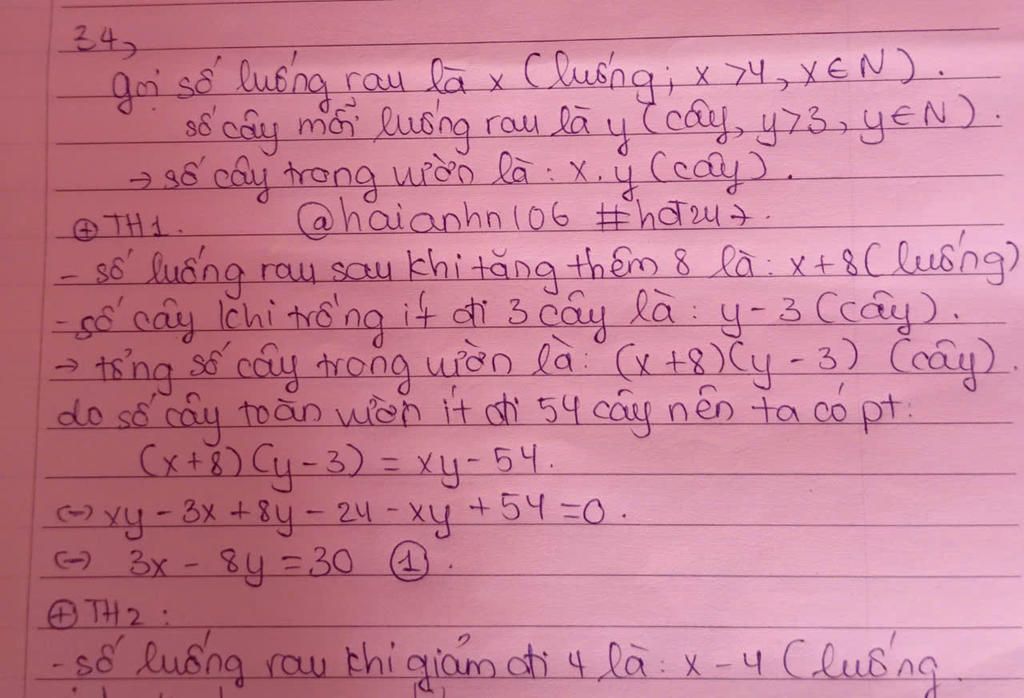 34,
gọi số luống rau là x (luống; x > 4, x ∈ N).
số cây mỗi luống rau là y (cây, y > 3, y ∈ N).
→ số cây trong vườn là: x.y (cây).
⊕ TH1. @haianhn106 #hoT247.
- số luống rau sau khi tăng thêm 8 là: x+8 (luống)
- số cây khi trồng ít đi 3 cây là: y-3 (cây).
→ tổng số cây trong vườn là: (x+8)(y-3) (cây).
do số cây toàn vườn ít đi 54 cây nên ta có pt:
(x+8)(y-3) = xy-54.
(=) xy - 3x + 8y - 24 - xy + 54 = 0.
(=) 3x - 8y = 30 ①.
⊕ TH2:
- số luống rau khi giảm đi 4 là: x-4 (luống